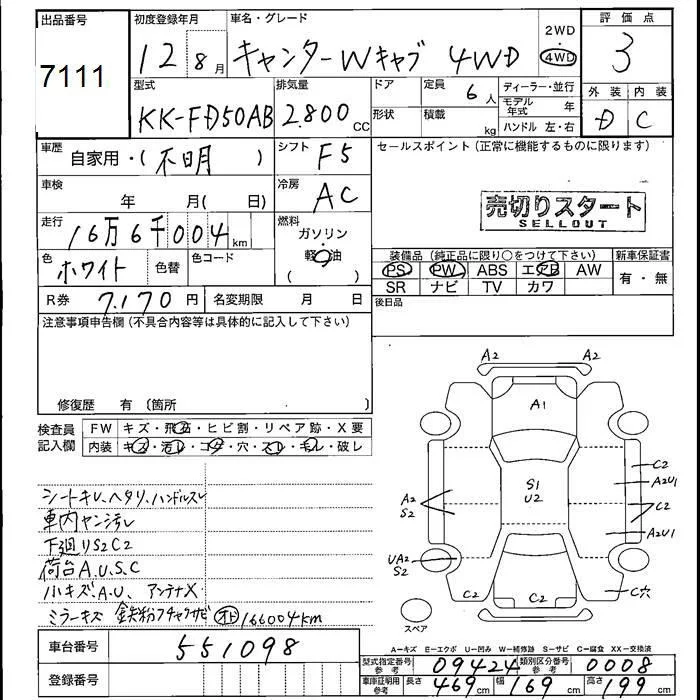 出品番号 初度登録年月 車名・グレード 2WD・4WD 評価点
7111 12 8月 キャンターWキャブ 4WD 3
型式 排気量 ドア 定員 6人 ディーラー・並行 外装 内装
KK-FD50AB 2.800cc 形状 積載 kg モデル年式 年 ハンドル 左・右 D C
車歴 自家用・(不明) シフト F5 セールスポイント(正常に機能するものに限ります)
車検 年 月( 日) 冷房 AC
売切りスタート
SELLOUT
走行 16万6千004km 燃料 ガソリン・軽油 ( )
色 ホワイト 色替 色コード
装備品(純正品に限り○をつけて下さい) 新車保証書
PS PW ABS エアB AW 有・無
SR ナビ TV カワ
R券 7.170円 名変期限 月 日 後日品
注意事項申告欄(不具合内容等は具体的に記入して下さい)
修復歴 有 〔箇所
検査員記入欄 FW キズ・飛石・ヒビ割・リペア跡・X要
内装 キズ・汚レ・コゲ・穴・スレ・キレ・破レ
シートキレ、ヘタリ、ハンドルスレ
車内ヤシ汚レ
下廻りS2C2
荷台A.U.S.C
小キズ.A.U、アンテナX
ミラーキズ 鉄粉フチャクサビ オド166004km
A2 A2
A1
S1
U2
C2
A2U1
C2
A2U1
A2
S2
UA2
S2
C2 C2 C穴
スペア
A-キズ E-エクボ U-凹み W-補修跡 S-サビ C-腐食 XX-交換済
車台番号 551098
登録番号
型式指定番号参考 09424 類別区分番号参考 0008
車庫証明用参考 長さ 469cm 幅 169cm 高さ 199cm